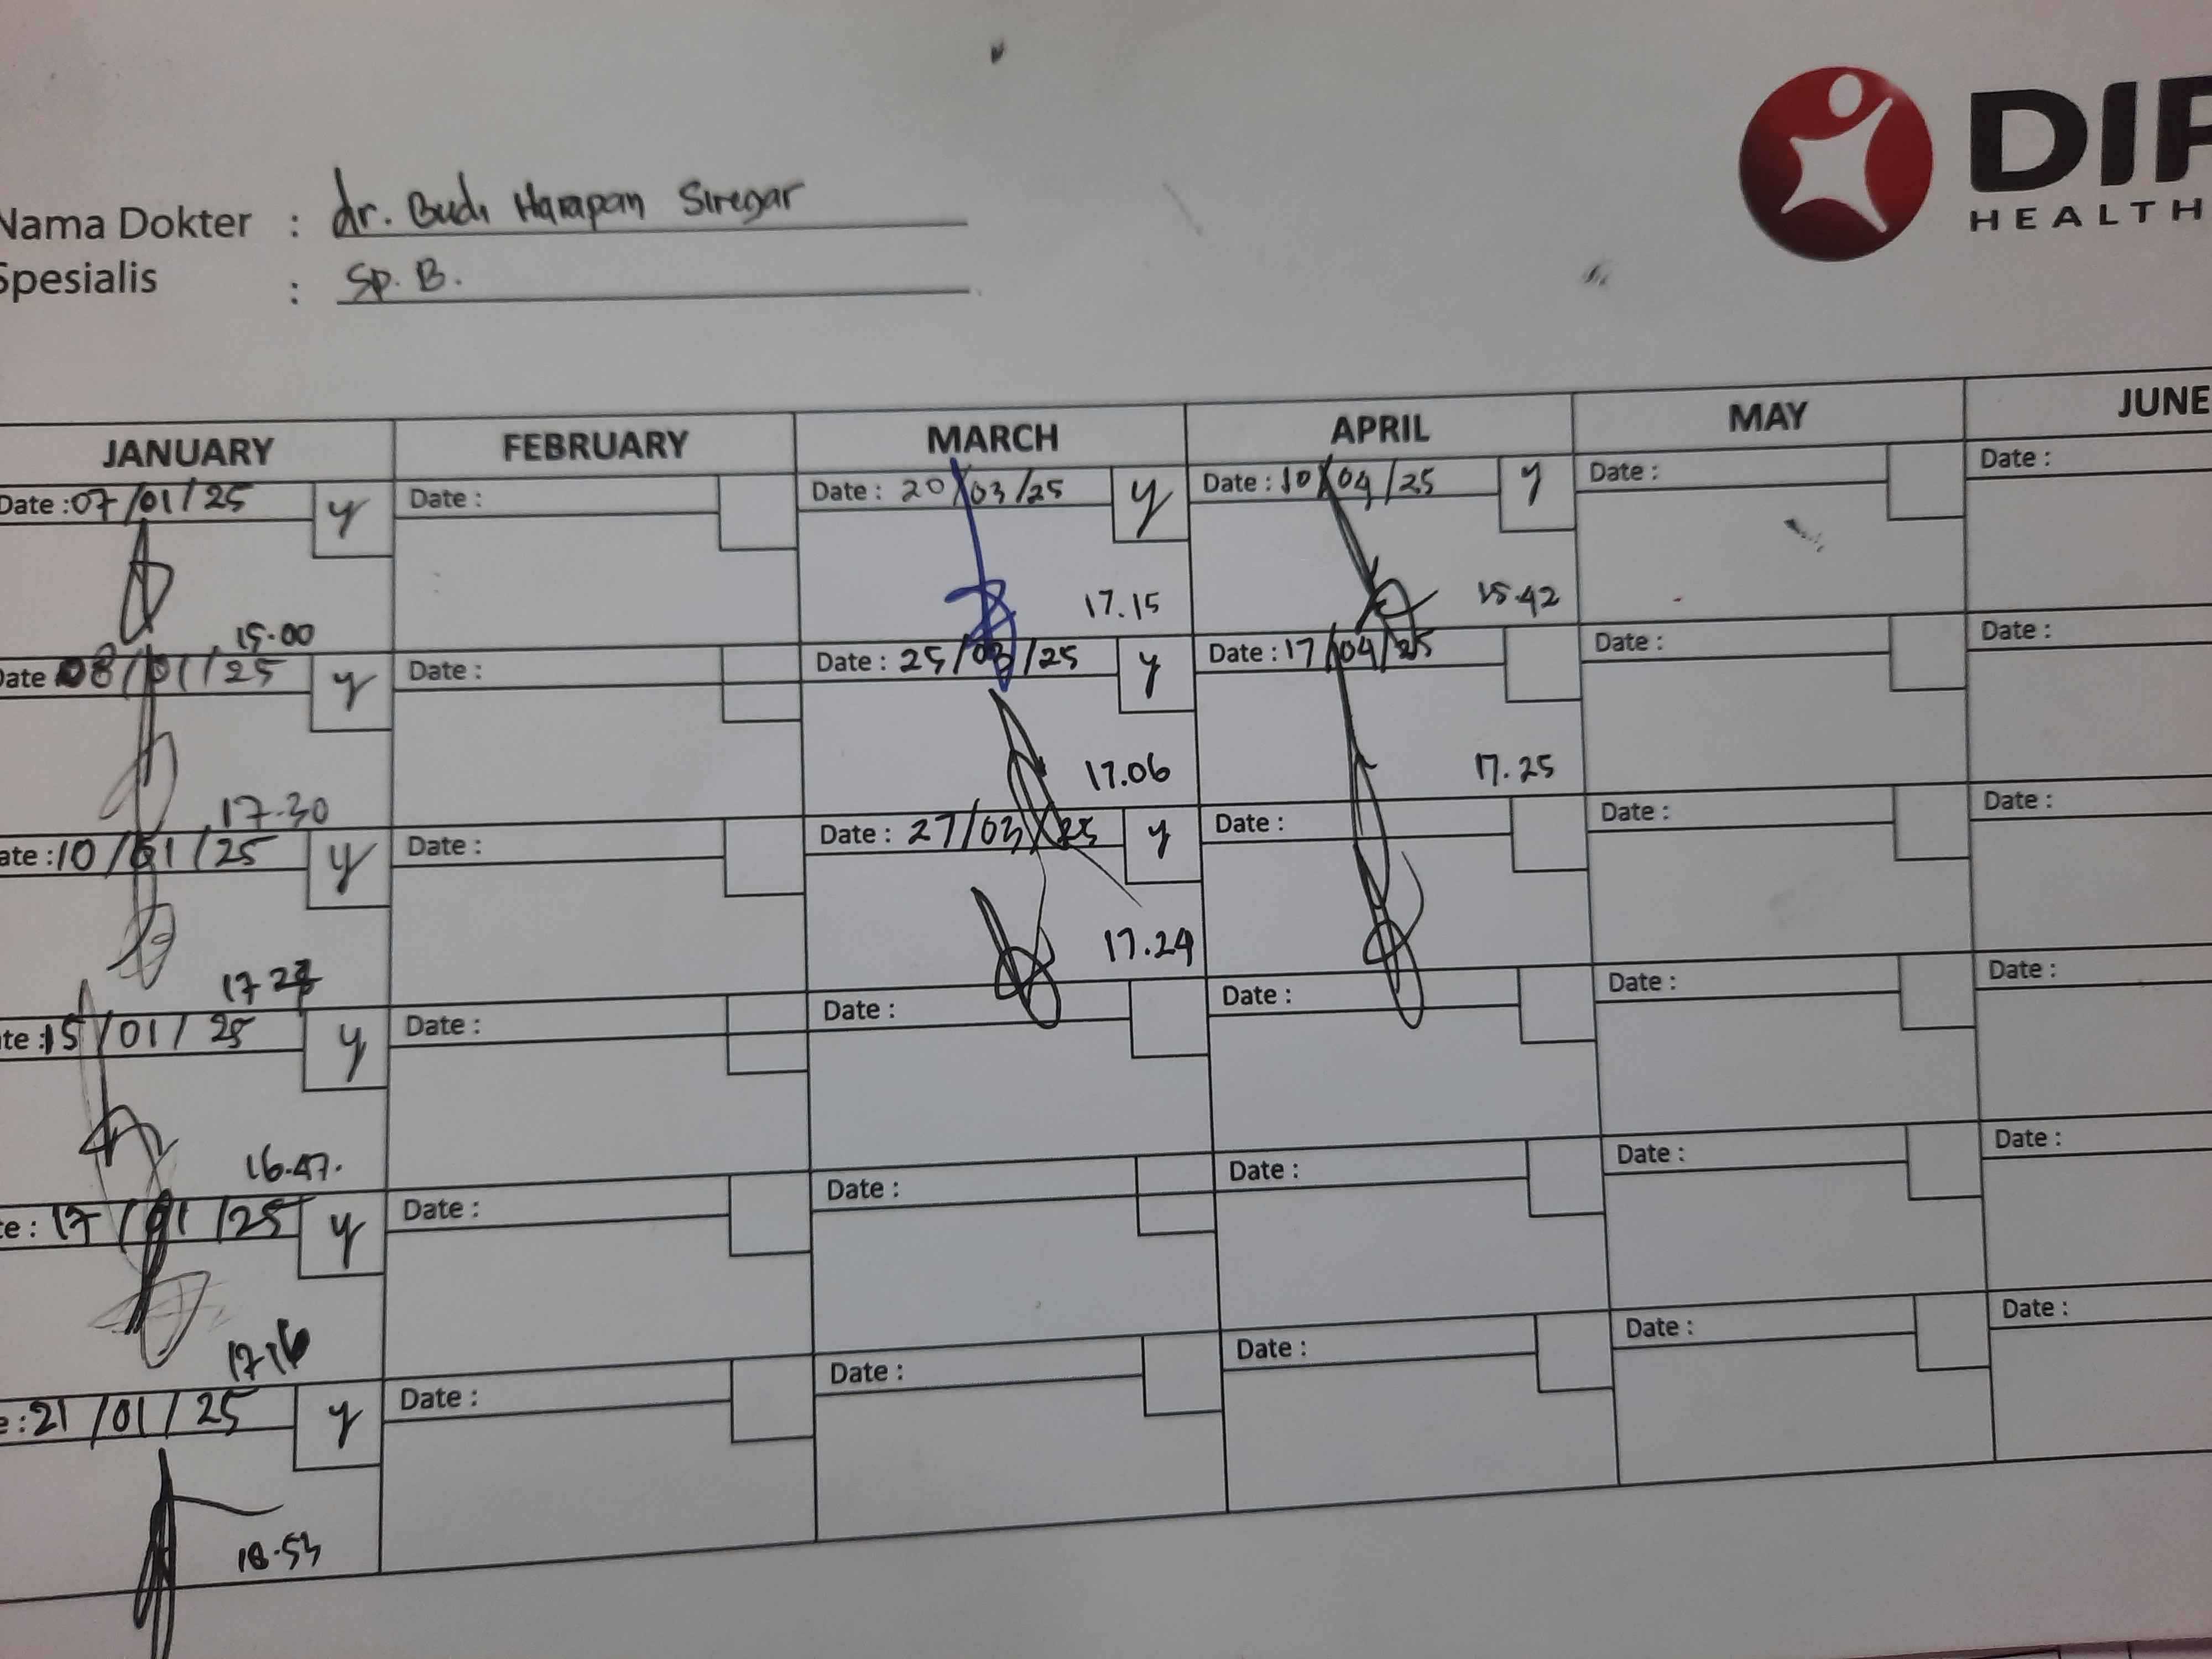 DIP
HEALTH
Nama Dokter : dr. Budi Harapan Siregar
Spesialis : Sp. B.
JANUARY FEBRUARY MARCH APRIL MAY JUNE
Date : 07/01/25 y Date : Date : 20/03/25 y Date : 10/04/25 y Date : Date :
15.00 17.15 15.42
Date 08/01/25 y Date : Date : 25/03/25 y Date : 17/04/25 Date : Date :
17.30 17.06 17.25
ate : 10/01/25 y Date : Date : 27/03/25 y Date : Date : Date :
17.24
te : 15/01/25 y Date : Date : Date : Date : Date :
16.47.
te : 17/01/25 y Date : Date : Date : Date : Date :
17.16
e : 21/01/25 y Date : Date : Date : Date : Date :
18.53